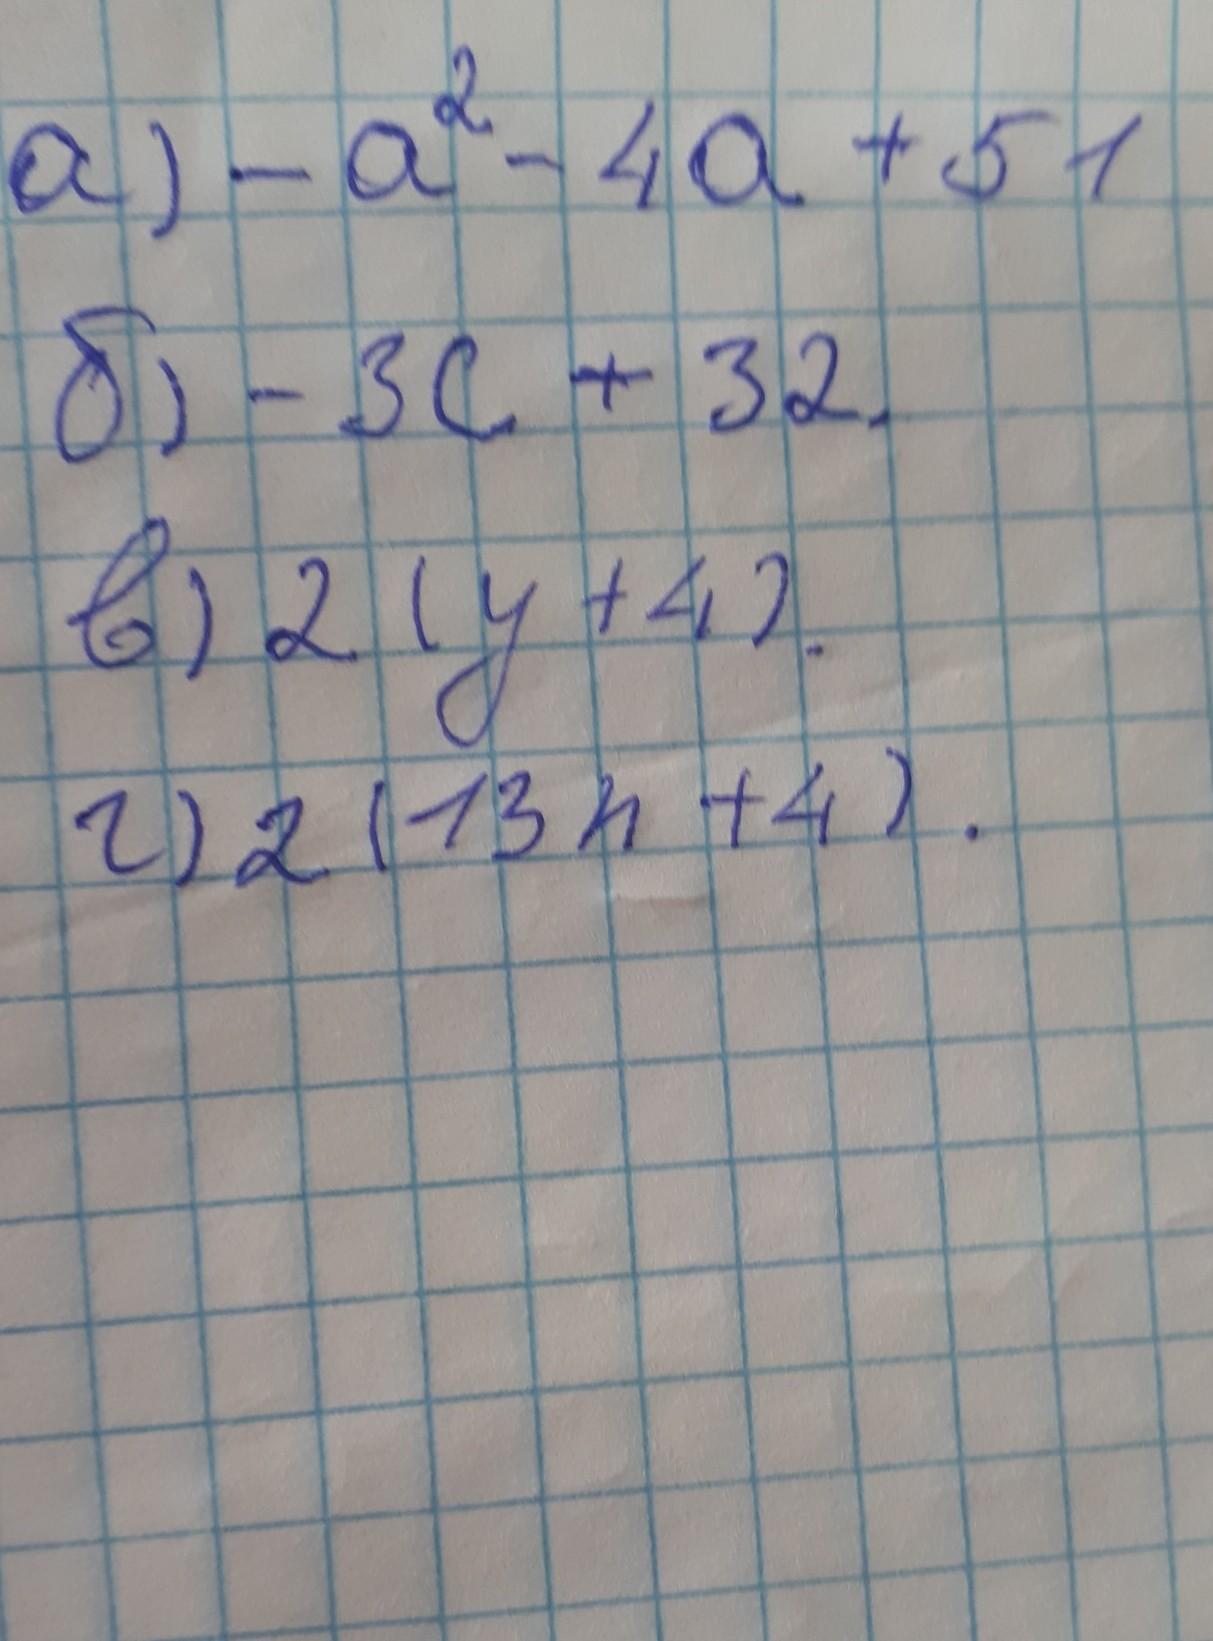 а) - a² - 4a + 51
б) - 3c + 32.
в) 2 (y + 4).
г) 2 (13n + 4).